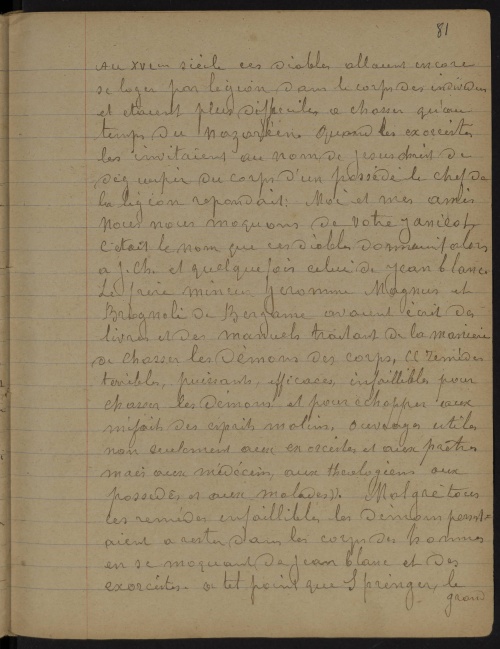 81
Au XVIme siècle ces diables allaient encore
se loger par légion dans le corps des individus
et étaient plus difficiles a chasser qu'au
temps du nazaréen. Quand les exorcistes
les invitaient au nom de Jesus christ de
déguerpir du corps d'un possédé le chef de
la légion repondait: Moi et mes amis
nous nous moquons de votre Janicot,
C'était le nom que ces diables donnaient alors
a J. Ch. et quelque fois celui de Jean blanc.
Le frère mineur Jeromme Magnus et
Brognoli de Bergame avaient écrit des
livres et des manuels traitant de la manière
de chasser les démons des corps, (( remèdes
terribles, puissants, efficaces, infaillibles pour
chasser les démons et pour échapper aux
mifait des esprits malins, ouvrages utiles
non seulement aux exorcistes et aux prêtres
mais aux médécins, aux theologiens aux
possedés et aux malades)). Malgré tous
ces remédes infaillibles les démons persist-
aient a rester dans les corps des hommes
en se moquant de Jean blanc et des
exorcistes. a tel point que Springer, le
grand